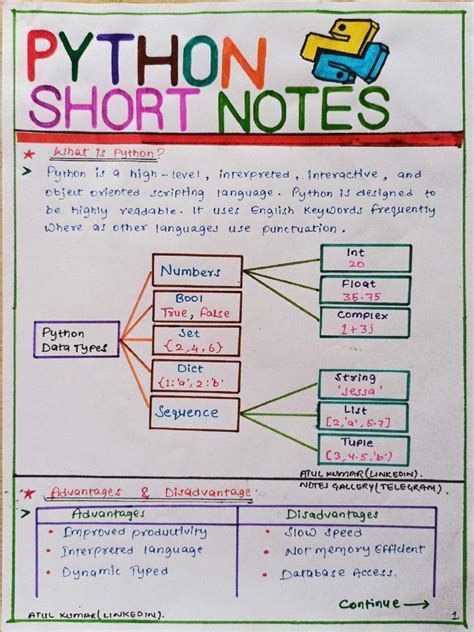 PYTHON
SHORT NOTES
★ What is Python?
> Python is a high-level, interpreted, interactive, and
object oriented scripting language. Python is designed to
be highly readable. It uses English Keywords frequently
where as other languages use punctuation.
Python
Data Types
Numbers
Int
20
Float
35.75
Complex
1+3j
Bool
True, False
Set
{2,4,6}
Dict
{1:'a',2:'b'
Sequence
String
'Jessa'
List
[2,'a',5.7]
Tuple
(3,4.5,'b')
ATUL KUMAR(LINKEDIN).
NOTES GALLERY(TELEGRAM).
★ Advantages & Disadvantage.
> Advantages
Disadvantages
• Improved productivity
• Slow speed
• Interpreted language
• Not memory Efficient
• Dynamic Typed
• Database Access.
Continue →
ATUL KUMAR(LINKEDIN).
1